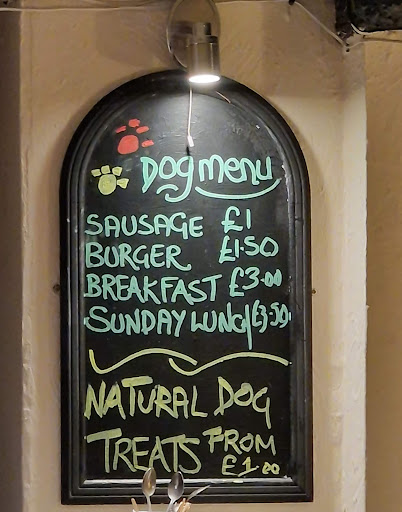 Dog menu
SAUSAGE £1
BURGER £1.50
BREAKFAST £3.00
SUNDAY LUNCH £3.50
NATURAL DOG
TREATS FROM
£1.00